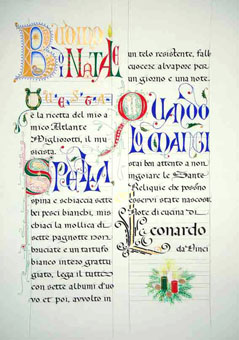 Budino
di NATALE
Questa
è la ricetta del mio a
mico Atlante
Migliorotti, il mu
sicista.
SPELLA
spina e schiaccia sette
bei pesci bianchi, mis
chiaci la mollica di
sette pagnotte non
bruciate e un tartufo
bianco intero grattu
giato, lega il tutto
con sette albumi d'uo
vo et poi, avvolto in
un telo resistente, fall
cuocere al vapore per
un giorno e una note.
QUANDO
lo mangi
stai ben attento a non
ingoiare le Sante
Reliquie che posšno
esservi state nascoste
Note di cucina di
Leonardo
da Vinci